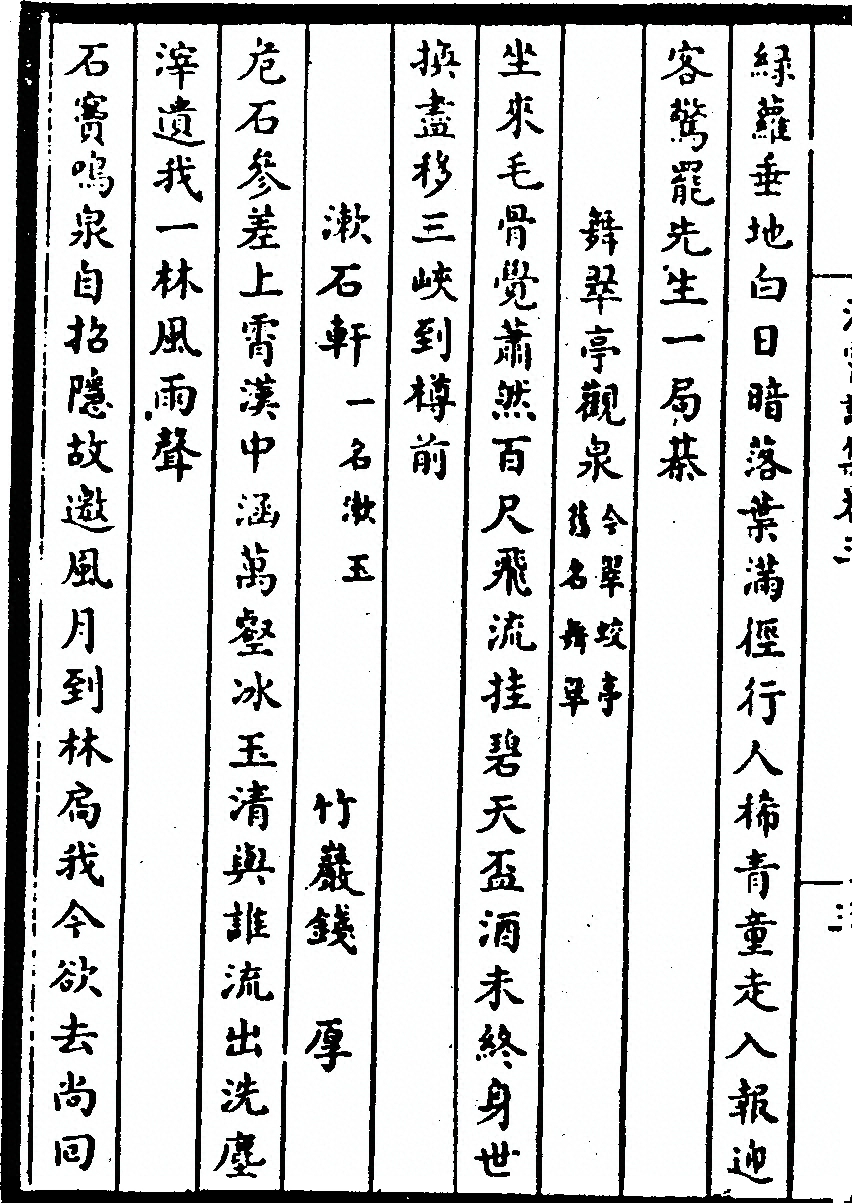 綠蘿垂地白日暗落葉滿徑行人稀青童走入報迎
客驚罷先生一局棊
舞翠亭觀泉 今翠蛟亭舊名舞翠
坐來毛骨覺蕭然百尺飛流挂碧天盃酒未終身世
換盡移三峽到樽前
漱石軒 一名漱玉 竹巖錢 厚
危石參差上霄漢中涵萬壑冰玉清與誰流出洗塵
滓遺我一林風雨聲
石竇鳴泉自招隱故邀風月到林扃我今欲去尚囘